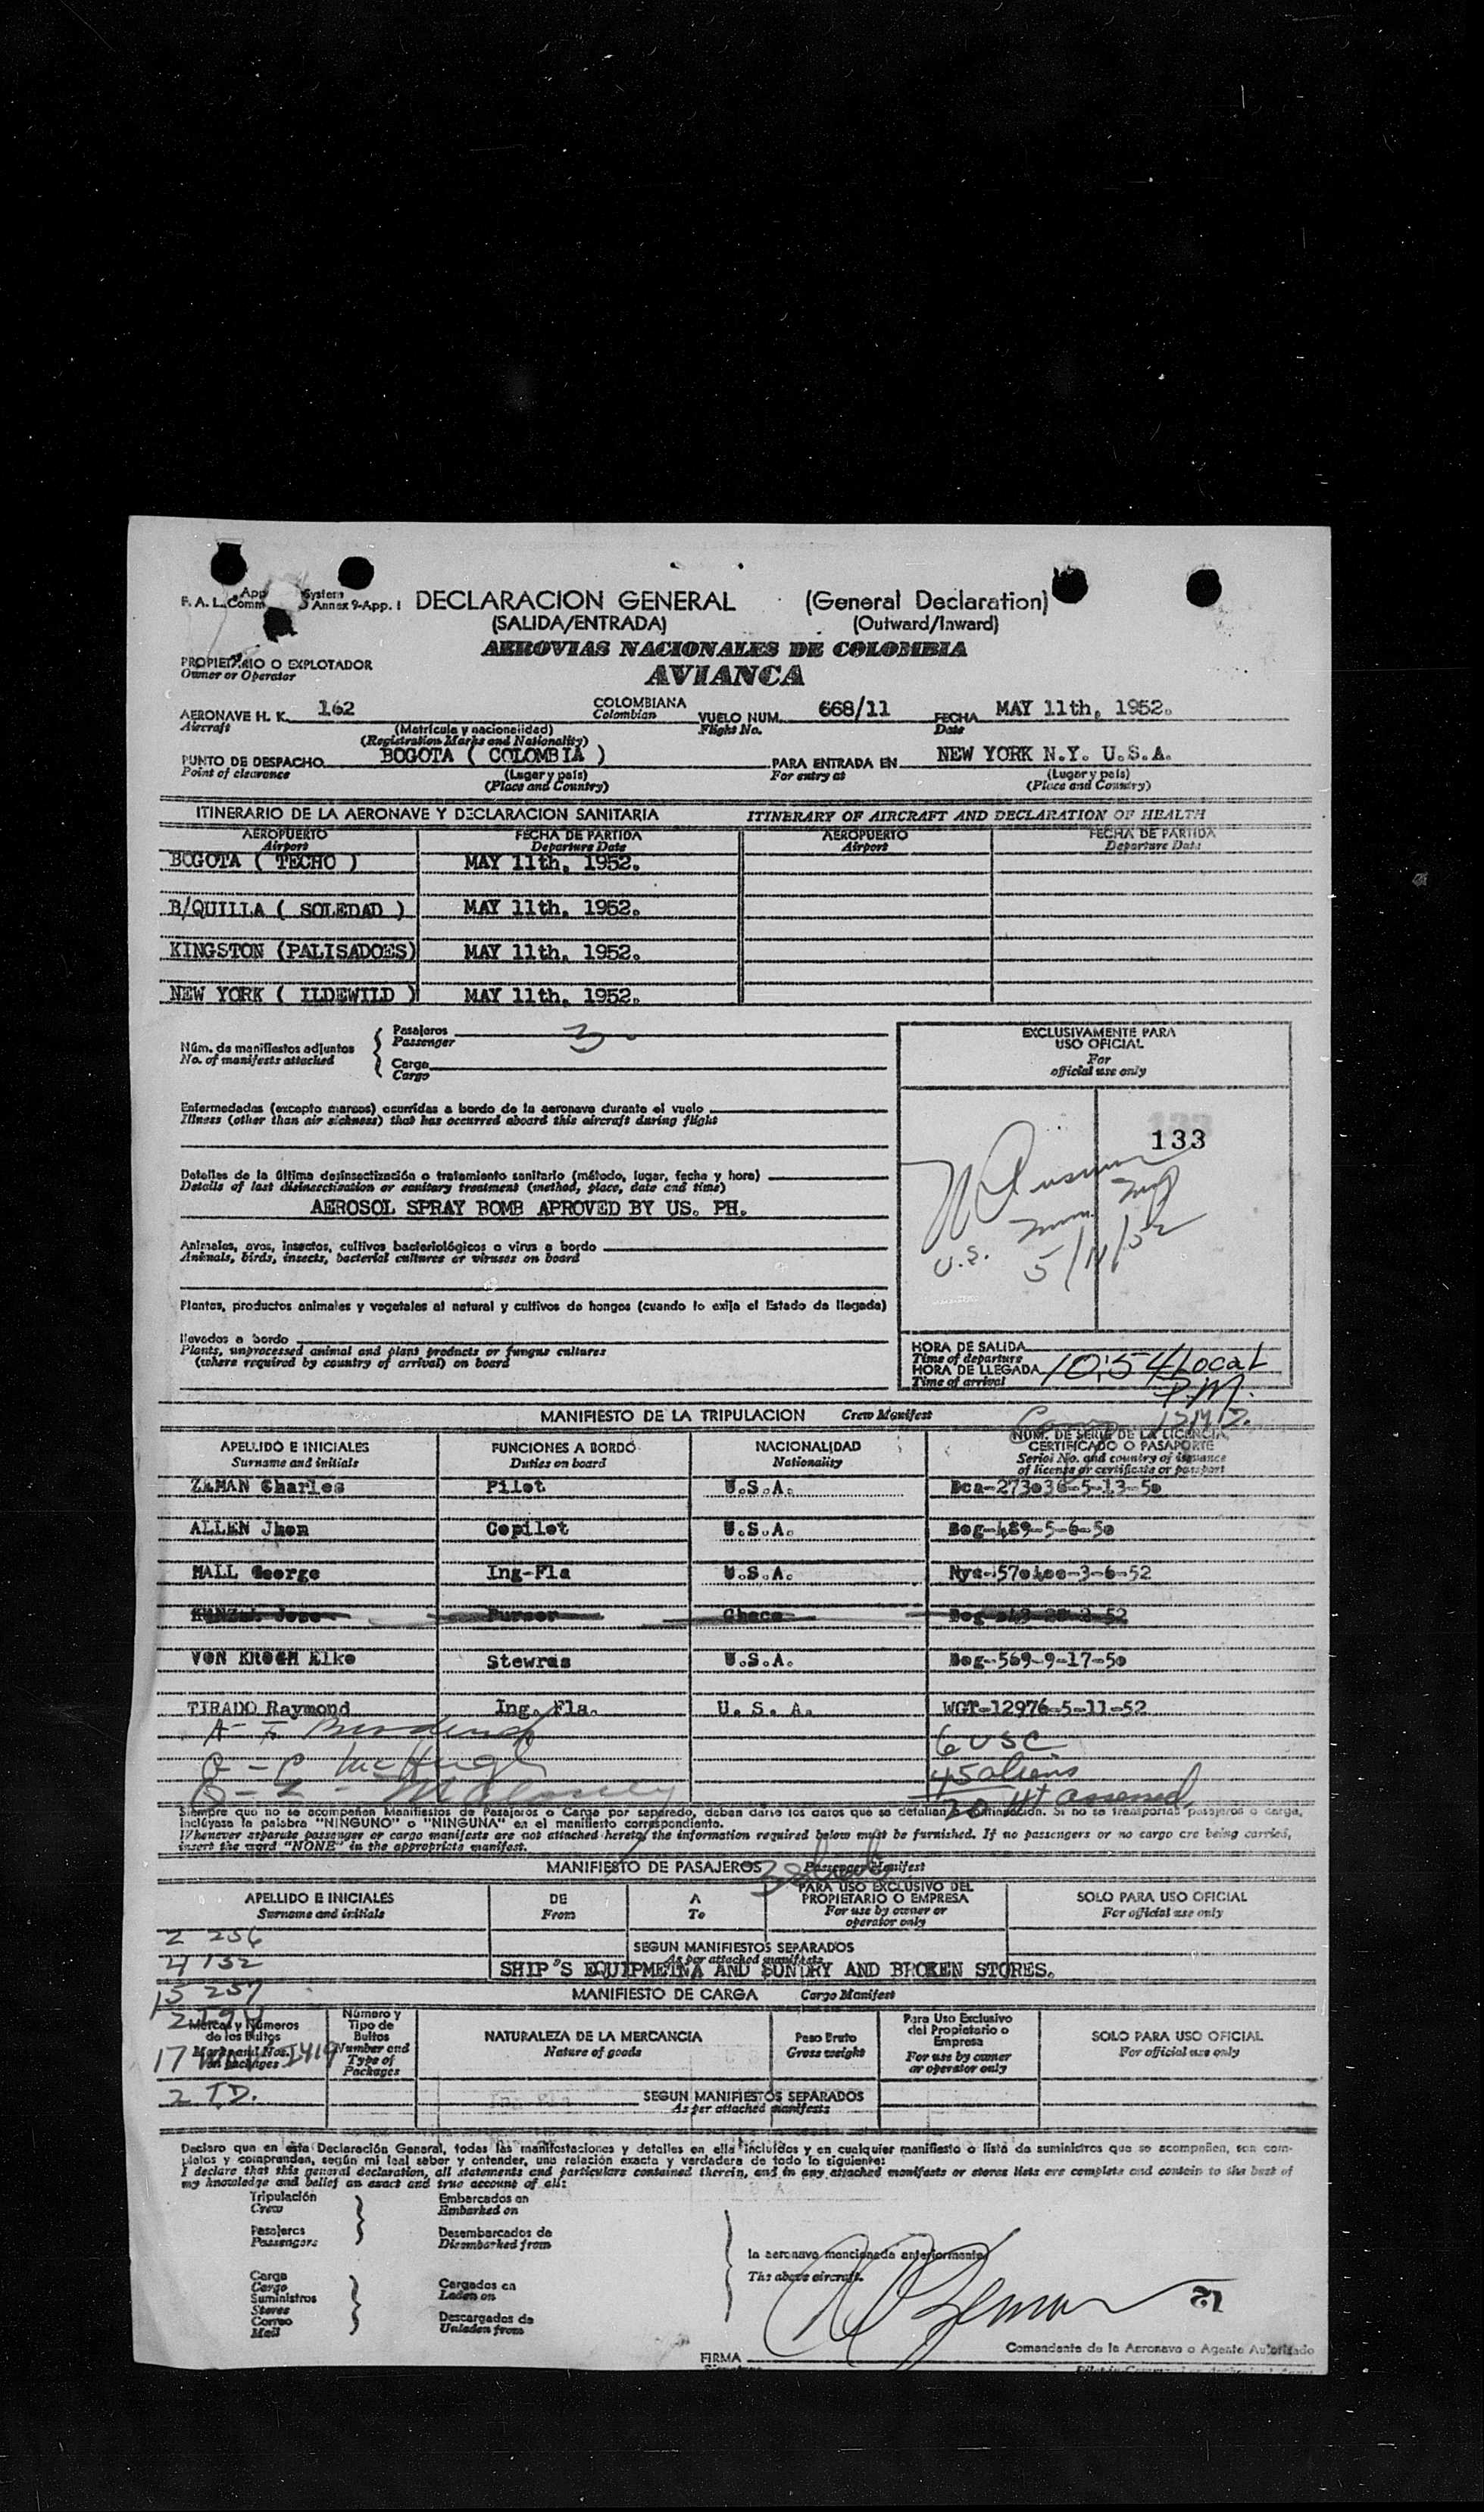 F. A. L. Comm
App
System
Annex 9-App. I
DECLARACION GENERAL (General Declaration)
(SALIDA/ENTRADA) (Outward/Inward)
AEROVIAS NACIONALES DE COLOMBIA
PROPIETARIO O EXPLOTADOR
Owner or Operator
AVIANCA
AERONAVE H. K. 162 COLOMBIANA VUELO NUM. 668/11 FECHA MAY 11th, 1952.
Aircraft (Matrícula y nacionalidad) Colombian Flight No. Date
(Registration Marks and Nationality)
PUNTO DE DESPACHO BOGOTA ( COLOMBIA ) PARA ENTRADA EN NEW YORK N.Y. U.S.A.
Point of clearance (Lugar y país) For entry at (Lugar y país)
(Place and Country) (Place and Country)
ITINERARIO DE LA AERONAVE Y DECLARACION SANITARIA ITINERARY OF AIRCRAFT AND DECLARATION OF HEALTH
AEROPUERTO FECHA DE PARTIDA AEROPUERTO FECHA DE PARTIDA
Airport Departure Date Airport Departure Date
BOGOTA ( TECHO ) MAY 11th, 1952.
B/QUILLA ( SOLEDAD ) MAY 11th, 1952.
KINGSTON (PALISADOES) MAY 11th, 1952.
NEW YORK ( ILDEWILD ) MAY 11th, 1952.
Núm. de manifiestos adjuntos
No. of manifests attached
Pasajeros 3
Passenger
Carga
Cargo
EXCLUSIVAMENTE PARA
USO OFICIAL
For
official use only
133
U.S. Imm. Insp
5/11/52
Enfermedades (excepto mareos) ocurridas a bordo de la aeronave durante el vuelo
Illness (other than air sickness) that has occurred aboard this aircraft during flight
Detalles de la última desinsectización o tratamiento sanitario (método, lugar, fecha y hora)
Details of last disinsectisation or sanitary treatment (method, place, date and time)
AEROSOL SPRAY BOMB APROVED BY US. PH.
Animales, aves, insectos, cultivos bacteriológicos o virus a bordo
Animals, birds, insects, bacterial cultures or viruses on board
Plantas, productos animales y vegetales al natural y cultivos de hongos (cuando lo exija el Estado de llegada)
llevados a bordo
Plants, unprocessed animal and plant products or fungus cultures
(where required by country of arrival) on board
HORA DE SALIDA
Time of departure
HORA DE LLEGADA 10:54 Local
Time of arrival P.M.
MANIFIESTO DE LA TRIPULACION Crew Manifest
APELLIDO E INICIALES FUNCIONES A BORDO NACIONALIDAD NUM. DE SERIE DE LA LICENCIA,
Surname and initials Duties on board Nationality CERTIFICADO O PASAPORTE
Serial No. and country of issuance
of license or certificate or passport
ZEMAN Charles Pilot U.S.A. Bca-273036-5-13-50
ALLEN Jhon Copilot U.S.A. Bog-489-5-6-50
HALL George Ing-Fla U.S.A. Nyc-570400-3-6-52
VON KROGH Elke Stewras U.S.A. Bog-569-9-17-50
TIRADO Raymond Ing. Fla. U. S. A. WGT-12976-5-11-52
6 USC
45 aliens
Siempre que no se acompañen Manifiestos de Pasajeros o Carga por separado, deben darse los datos que se detallan a continuación. Si no se transportas pasajeros o carga,
inclúyase la palabra "NINGUNO" o "NINGUNA" en el manifiesto correspondiente.
Whenever separate passenger or cargo manifests are not attached hereto, the information required below must be furnished. If no passengers or no cargo are being carried,
insert the word "NONE" in the appropriate manifest.
MANIFIESTO DE PASAJEROS Passenger Manifest
APELLIDO E INICIALES DE A PARA USO EXCLUSIVO DEL PROPIETARIO O EMPRESA SOLO PARA USO OFICIAL
Surname and initials From To For use by owner or operator only For official use only
2 256
4 132
15 257
SEGUN MANIFIESTOS SEPARADOS
As per attached manifests
SHIP'S EQUIPMETNA AND SUNDRY AND BROKEN STORES.
MANIFIESTO DE CARGA Cargo Manifest
Marcas y Números de los Bultos
Marks and Nos. on packages
Número y Tipo de Bultos
Number and Type of Packages
NATURALEZA DE LA MERCANCIA
Nature of goods
Peso Bruto
Gross weight
Para Uso Exclusivo del Propietario o Empresa
For use by owner or operator only
SOLO PARA USO OFICIAL
For official use only
2 T.D.
SEGUN MANIFIESTOS SEPARADOS
As per attached manifests
Declaro que en esta Declaración General, todas las manifestaciones y detalles en ella incluidos y en cualquier manifiesto o lista de suministros que se acompañen, son com-
pletos y comprenden, según mi leal saber y entender, una relación exacta y verdadera de todo lo siguiente:
I declare that this general declaration, all statements and particulars contained therein, and in any attached manifests or stores lists are complete and contain to the best of
my knowledge and belief an exact and true account of all:
Tripulación Embarcados en
Crew Embarked on
Pasajeros Desembarcados de
Passengers Disembarked from
la aeronave mencionada anteriormente
The above aircraft.
Carga Cargados en
Cargo Laden on
Suministros
Stores
Correo Descargados de
Mail Unladen from
12
Comandante de la Aeronave o Agente Autorizado
FIRMA